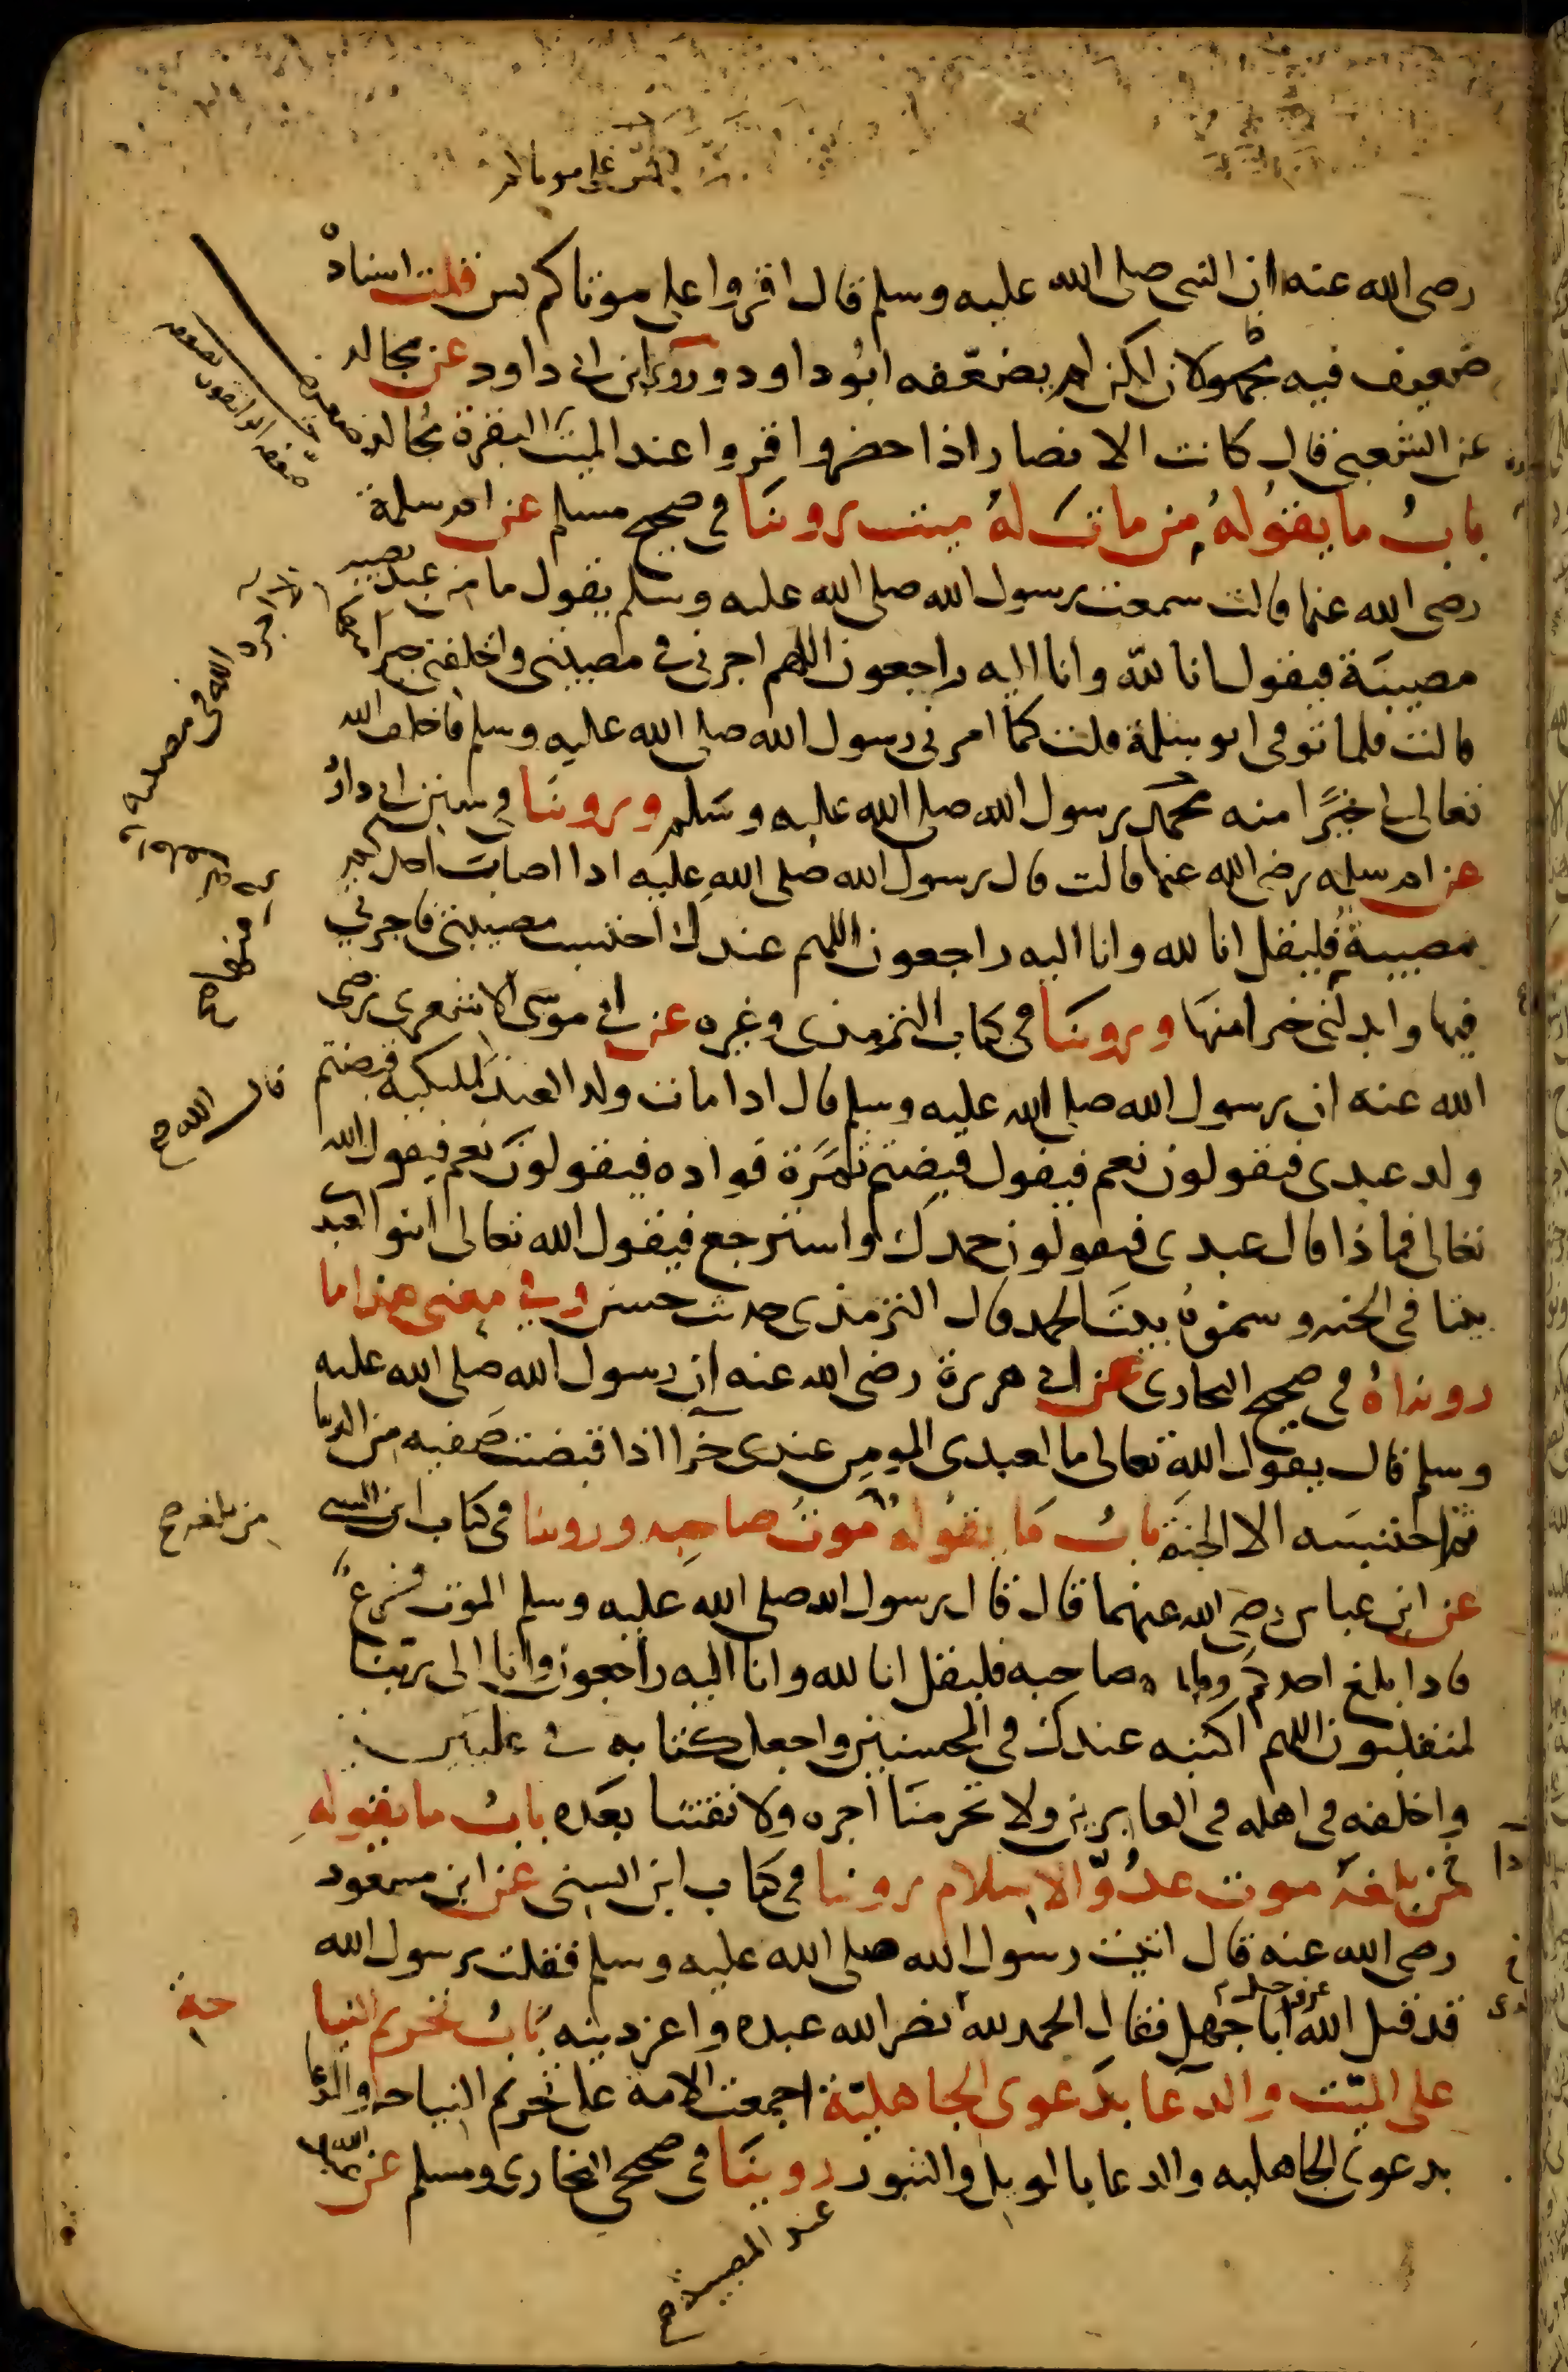 رضى الله عنه ان النبى صلى الله عليه وسلم قال اقروا على موتاكم يس قلت اسناده
ضعيف فيه مجهولان لكن لم يضعّفه ابُو داود وروى ابن ابى داود عن مجالد
عن الشعبى قال كانت الانصار اذا حضروا قروا عند الميت البقرة مُجالد ضعيف
بابُ ما يقُولهُ من ماتَ لهُ ميت روينَا فى صحيح مسلم عن ام سلمة
رضى الله عنها قالت سمعت رسول الله صلى الله عليه وسلم يقول ما من عبد تصيبه
مصيبَة فيقول انا للّه وانا اليه راجعون اللهم اجرنى فى مصيبتى واخلف لى خيرا منها
قالت فلما توفى ابو سلمة قلت كما امرنى رسول الله صلى الله عليه وسلم فاخلف الله
تعالى لى خيرًا منه محمد رسول الله صلى الله عليه وسَلم وروينَا فى سنن ابى داوُد
عن ام سلمه رضى الله عنها قالت قال رسول الله صَلى اللهِ عليه اذا اصابت احدكم
مصيبة فليقل انا لله وانا اليه راجعون اللهم عندك احتسب مصيبتى فاجرنى
فيها وابدلنى خيرا منهَا وروينَا فى كتاب الترمذى وغيره عن ابى موسى الاشعرى رضى
الله عنه ان رسول الله صلى الله عليه وسلم قال اذا مات ولد العبد لمليكته قبضتم
ولد عبدى فيقولون نعم فيقول قبضتم ثمَرَة فواده فيقولونَ نعم فيقول الله
تعالى فماذا قال عبدى فيقولون حمدك واسترجع فيقول الله تعالى ابنوا لعبدى
بيتا فى الجنه وسموُه بيتَ الحمد قال الترمذى حديث حسن وفى معنى هذا ما
رويناهُ فى صحيح البخارى عن ابى هريرة رضى الله عنه ان رسول الله صلى الله عليه
وسلم قال يقول الله تعالى ما لعبدى المومن عندى جزآ اذا قبضت صَفيه من الدنيا
ثم احتسَبه الا الجنة بابُ مَا يقُولهُ موتُ صاحِبه وروينا فى كتاب ابن السنى
عن ابن عباس رضى الله عنهما قال قال رسول الله صلى الله عليه وسلم الموت فزعٌ
فاذا بلغ احدكم وفاة صاحبه فليقل انا لله وانا اليه راجعون وانا الى ربّنا
لمنقلبون اللهم اكتبه عندك فى المحسنين واجعل كتابه فى عليّين
واخلفه فى اهله فى الغابرين ولا تحرمنَا اجره ولا تفتنّا بعدَه بابُ ما يقوله
من بلغهُ موت عدُوّ الاسلام روينا فى كتاب ابن السنى عن ابن مسعود
رضى الله عنه قال اتيت رسول الله صلى الله عليه وسلم فقلت يرسول الله
قد قتل الله عز وجل ابا جهل فقال الحمد لله نصر الله عبده واعز دينه بَابُ تحريم النياحة
على الميّت والدعآ بدَعوى الجاهليّة اجمعت الامة على تحريم النياحه والدعا
بدعوى الجاهليه والدعا بالويل والثبور روينَا فى صحيحى البخارى ومسلم عن عبد الله
الا اجره الله فى مصيبته
منها
قال الله صح
من بلغه صح
عند المصيبة صح